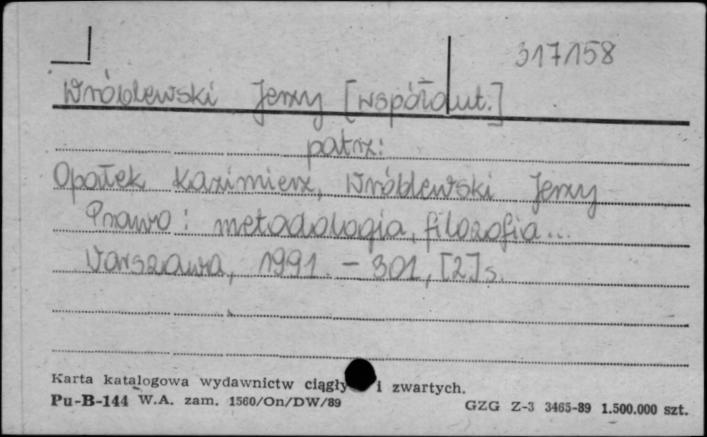 317158
Wróblewski Jerzy [współaut.]
patrz:
Opałek Kazimierz, Wróblewski Jerzy
Prawo: metodologia, filozofia...
Warszawa, 1991. - 301, [2] s.
Karta katalogowa wydawnictw ciągły i zwartych.
Pu-B-144 W.A. zam. 1560/On/DW/89 GZG Z-3 3465-89 1.500.000 szt.